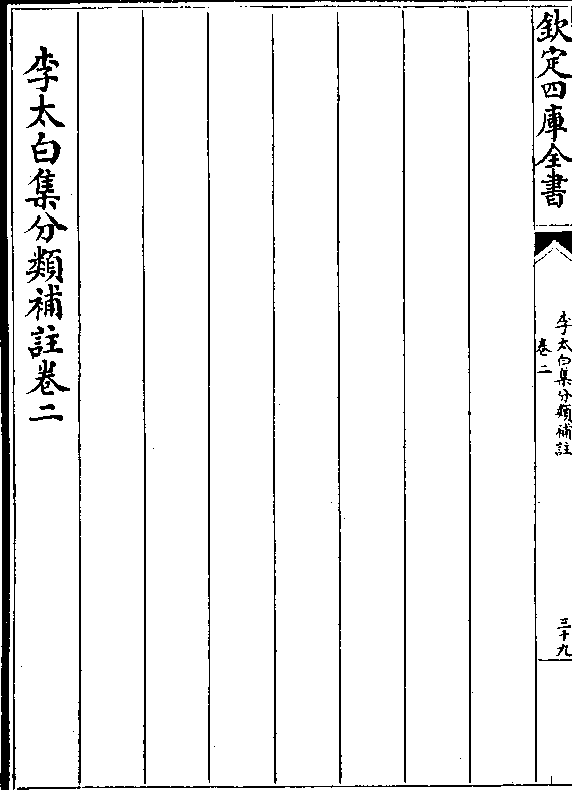 欽定四庫全書
李太白集分類補註
卷二
三十九
李太白集分類補註卷二